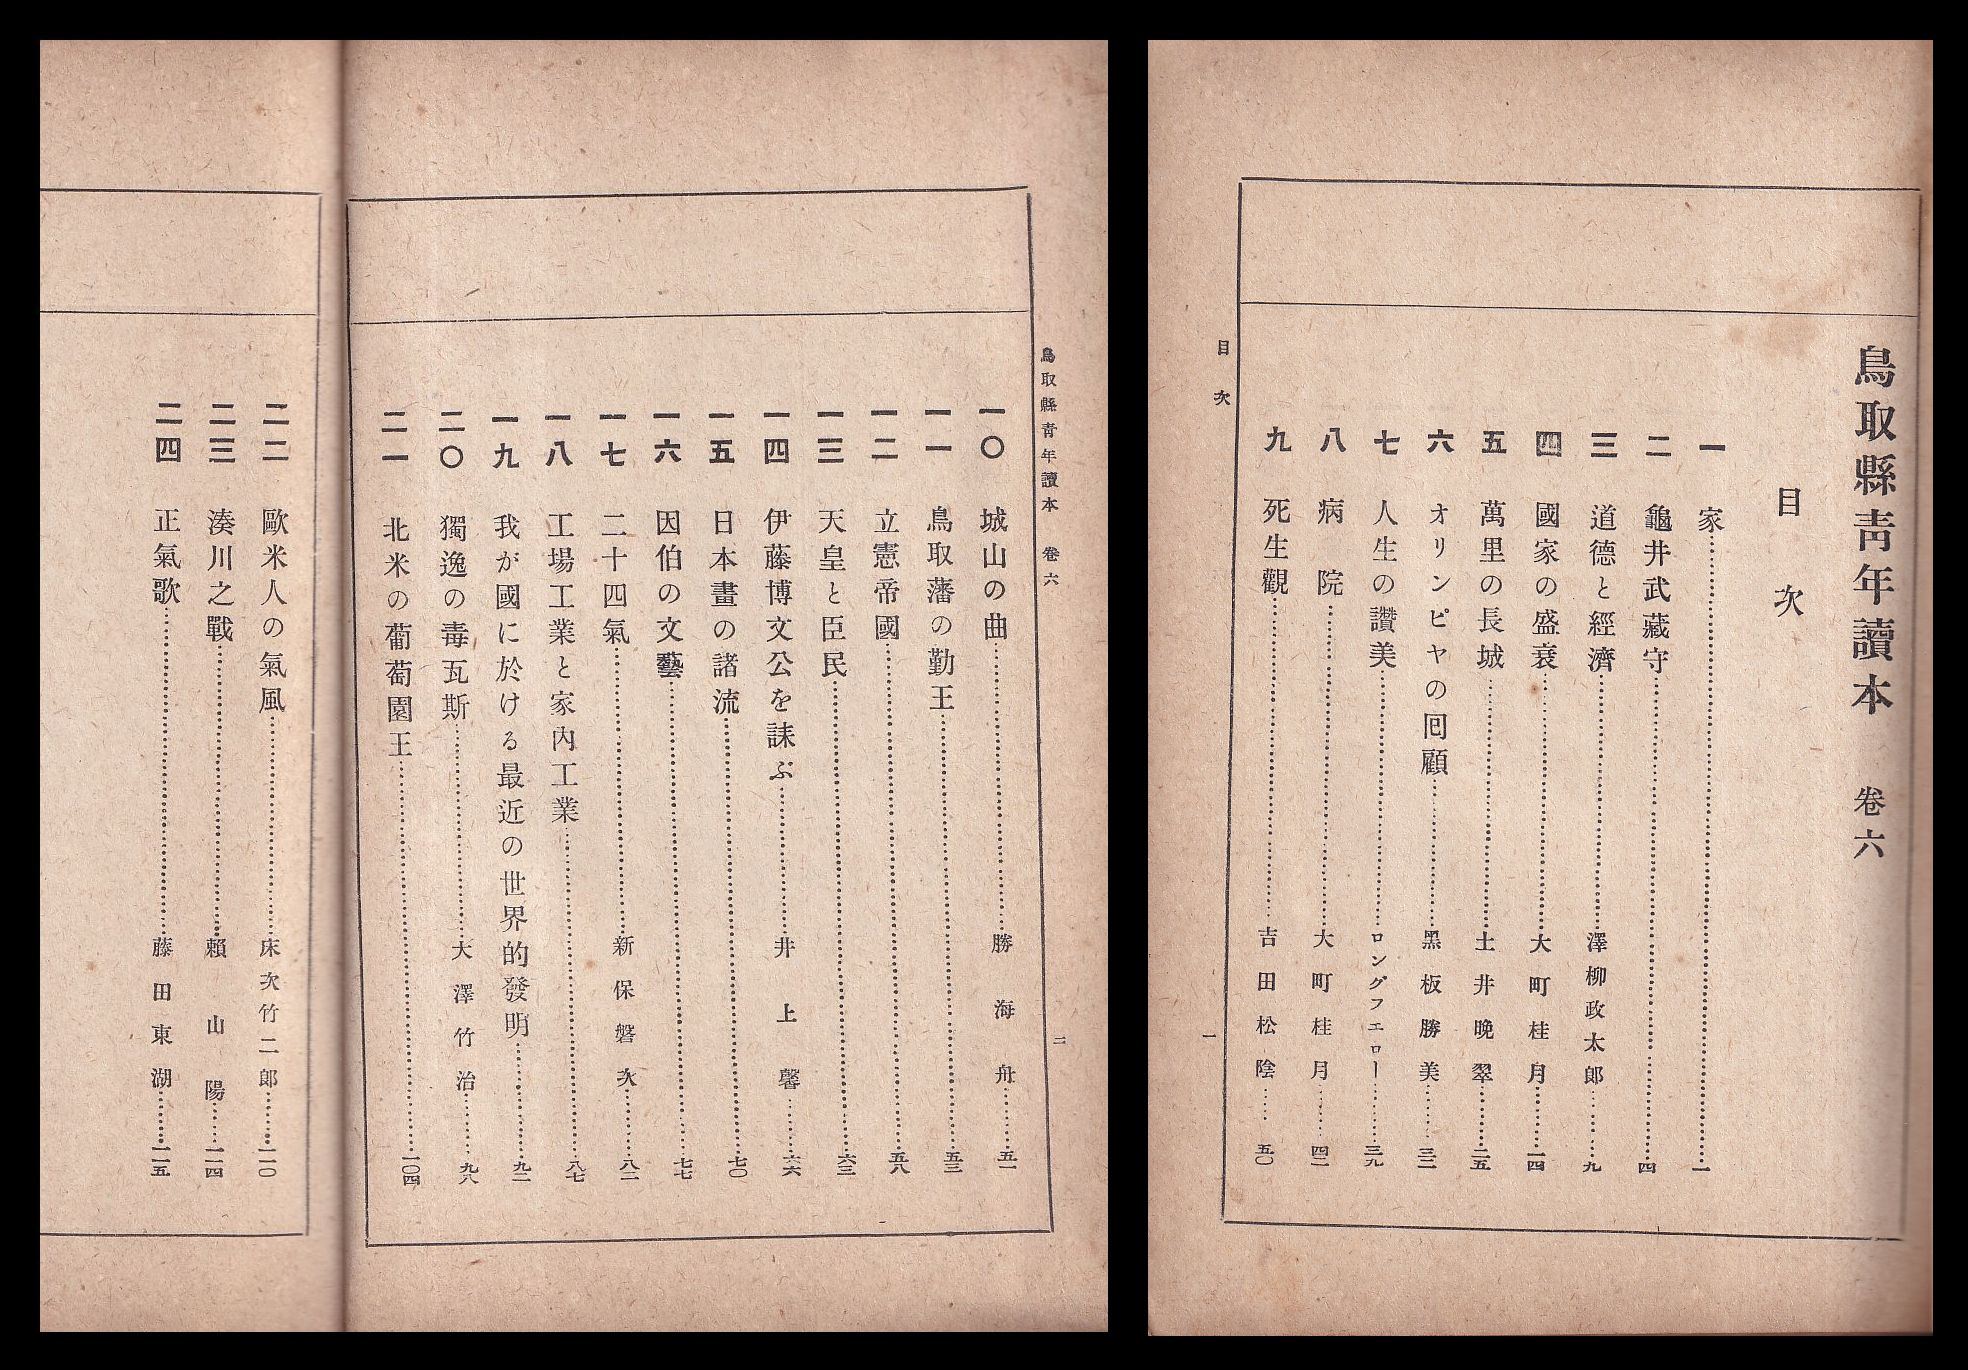 鳥取縣靑年讀本 卷六
目次
一 家……一
二 龜井武藏守……四
三 道德と經濟……澤柳政太郎……九
四 國家の盛衰……大町桂月……一四
五 萬里の長城……土井晩翠……二五
六 オリンピヤの囘顧……黑板勝美……三二
七 人生の讚美……ロングフエロー……三九
八 病院……大町桂月……四二
九 死生觀……吉田松陰……五〇
目次
一
鳥取縣靑年讀本 卷六
二
一〇 城山の曲……勝海舟……五一
一一 鳥取藩の勤王……五三
一二 立憲帝國……五八
一三 天皇と臣民……六三
一四 伊藤博文公を誄ぶ……井上馨……六六
一五 日本畫の諸流……七〇
一六 因伯の文藝……七七
一七 二十四氣……新保磐次……八二
一八 工場工業と家內工業……八七
一九 我が國に於ける最近の世界的發明……九二
二〇 獨逸の毒瓦斯……大澤竹治……九八
二一 北米の葡萄園王……一〇四
二二 歐米人の氣風……床次竹二郎……一一〇
二三 湊川之戰……賴山陽……一一四
二四 正氣歌……藤田東湖……一一五